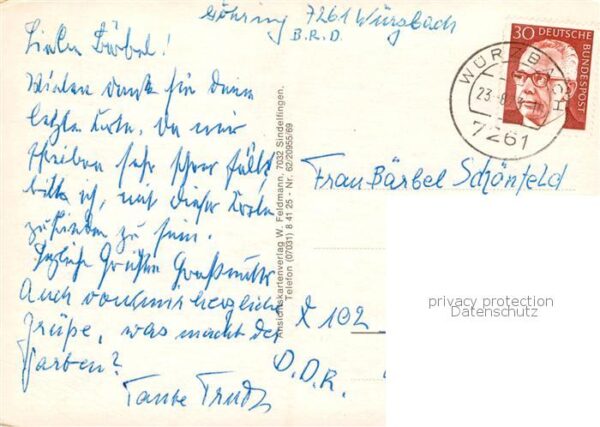 Göhring 7261 Würzbach
B.R.D.
Liebe Bärbel!
Vielen Dank für Deine
letzte Karte. Da mir
schreiben sehr schwer fällt,
bitte ich, mit dieser Karte
zufrieden zu sein.
Herzliche Grüße Großmutter
Auch von uns herzliche
Grüße, was macht der
Garten?
Tante Trude
Ansichtskartenverlag W. Feldmann, 7032 Sindelfingen,
Telefon (07031) 8 41 25 - Nr. 62/20955/69
30 DEUTSCHE BUNDESPOST
WÜRZBACH
23.-8.
7261
Frau Bärbel Schönfeld
X 102
D.D.R.
privacy protection
Datenschutz